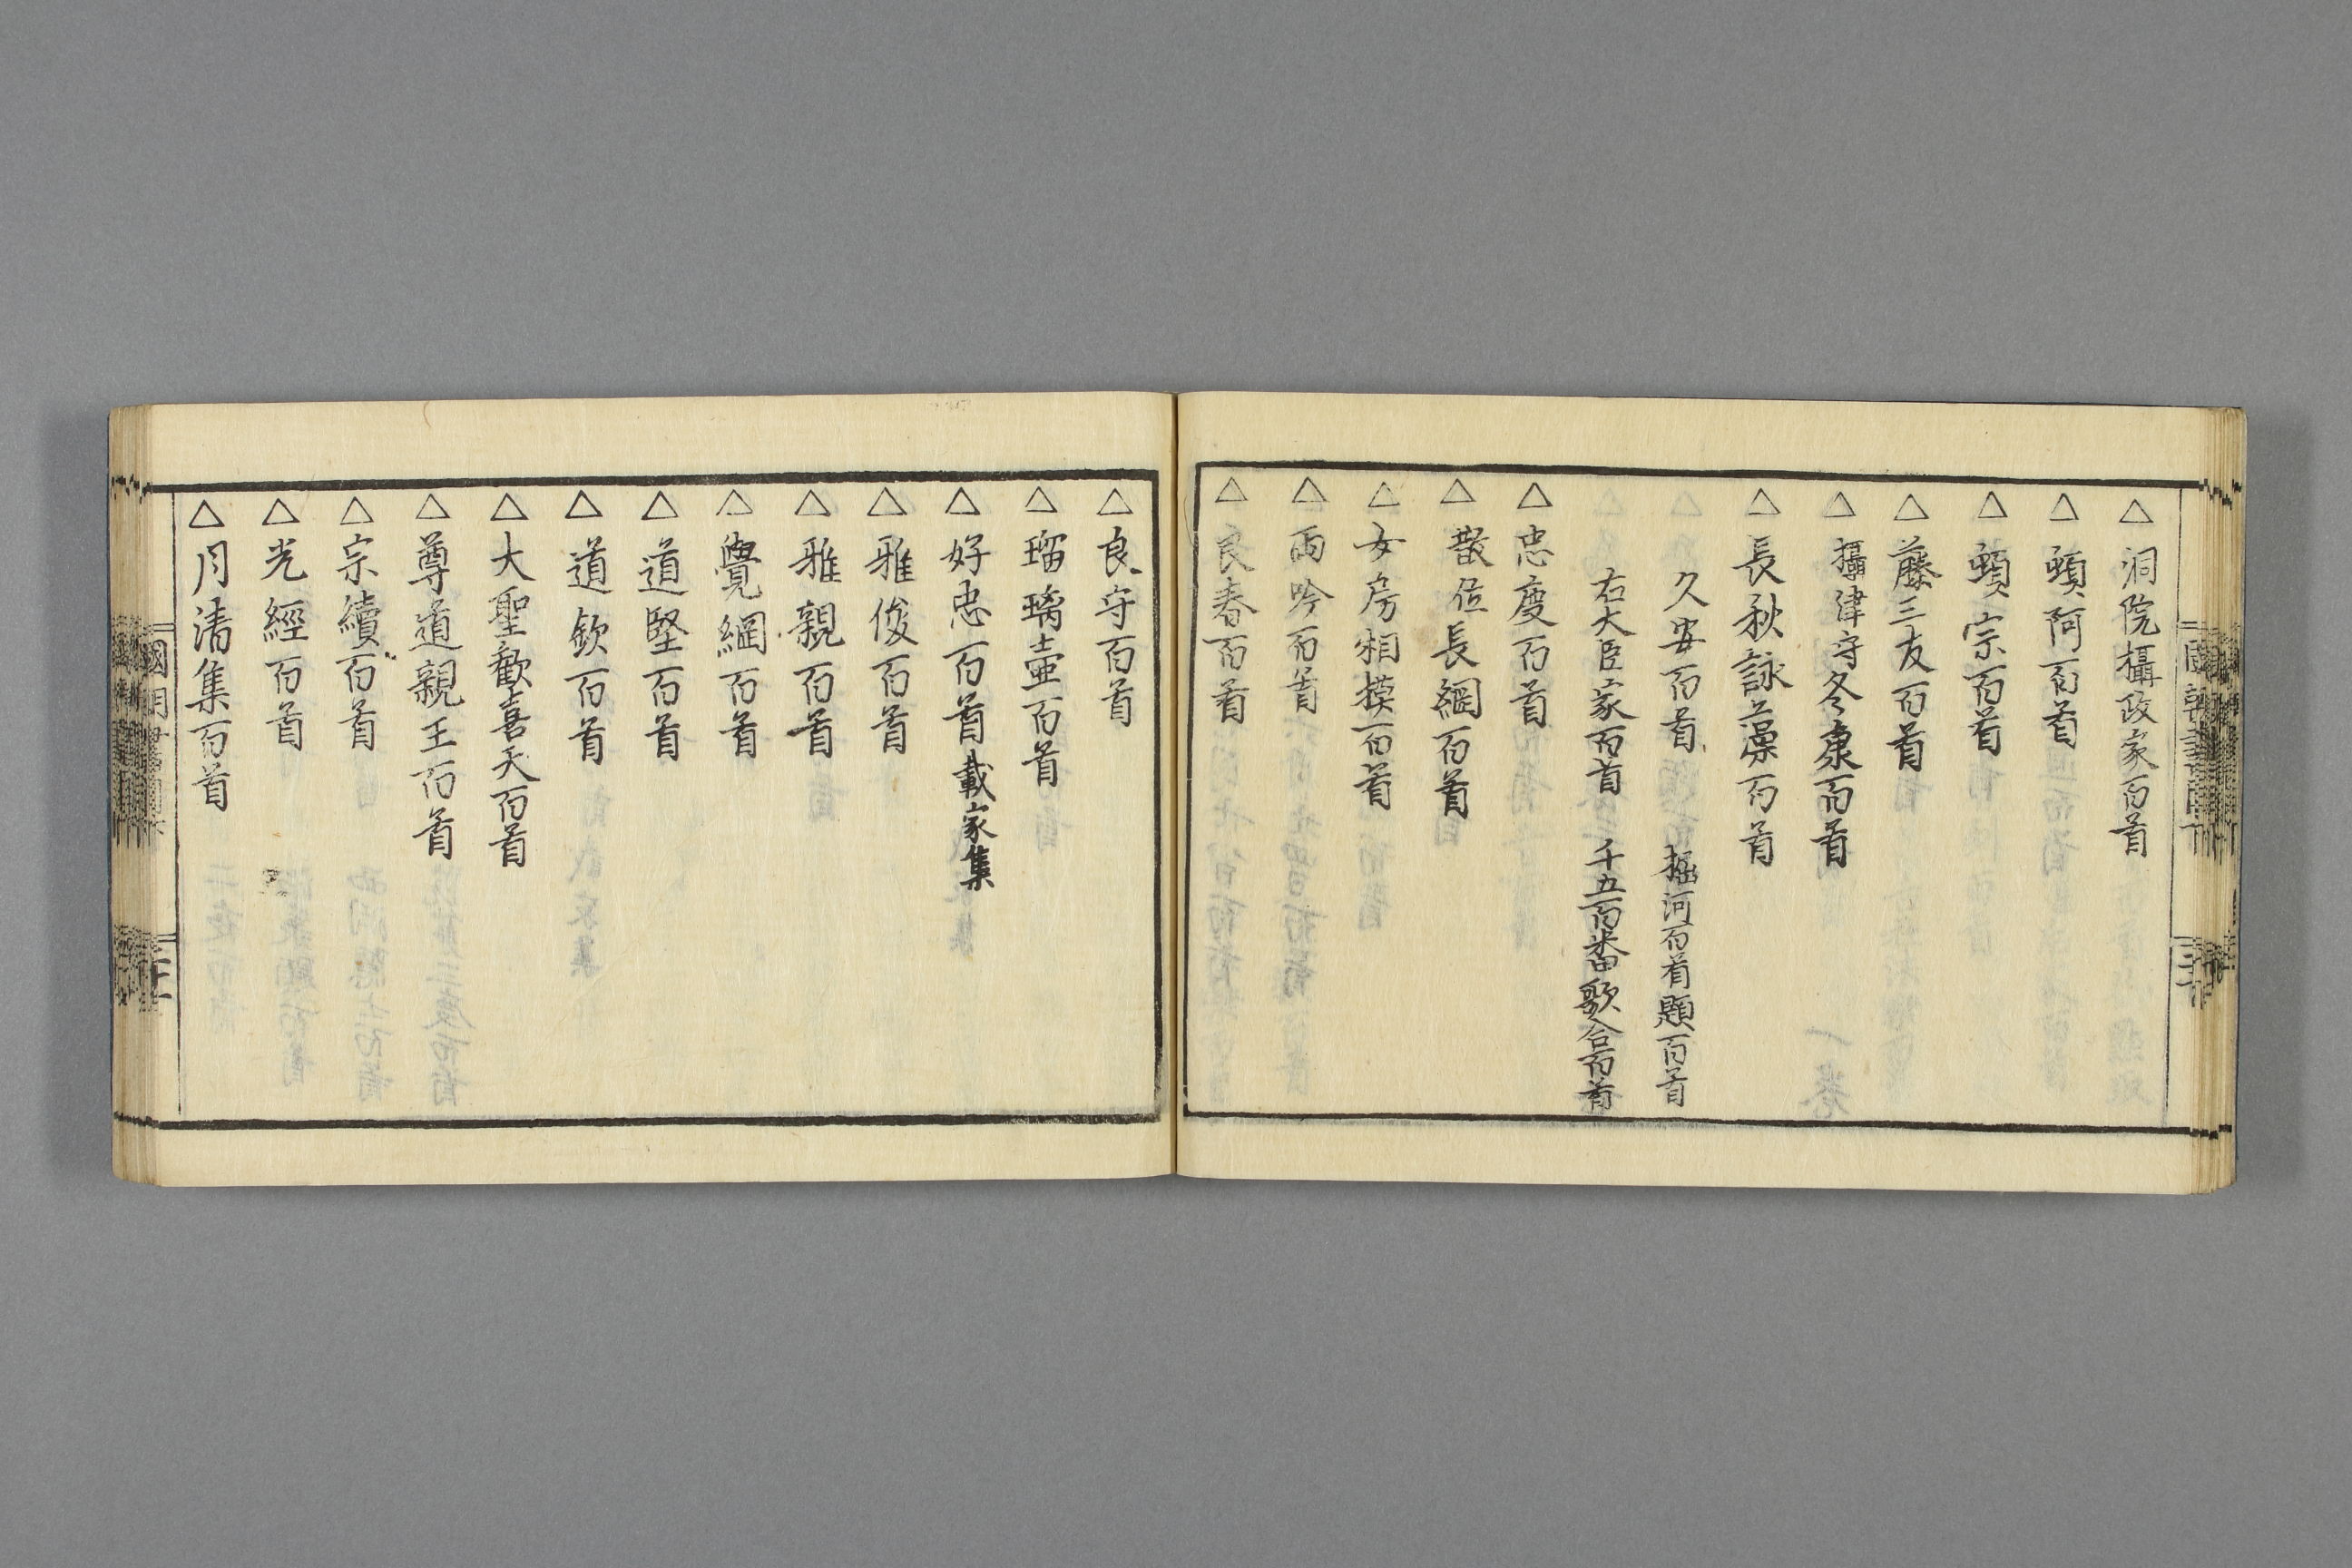 △洞院攝政家百首
△頓阿百首
△頓宗百首
△藤三友百首
△攝津守冬康百首
△長秋詠藻百首
久安百首 堀河百首題百首
右大臣家百首 千五百番歌合百首
△忠度百首
△散位長綱百首
△女房相摸百首
△雨吟百首
△良春百首
△良守百首
△瑠璃壷百首
△好忠百首載家集
△雅俊百首
△雅親百首
△覺綱百首
△道堅百首
△道欽百首
△大聖歡喜天百首
△尊道親王百首
△宗續百首
△光經百首
△月清集百首